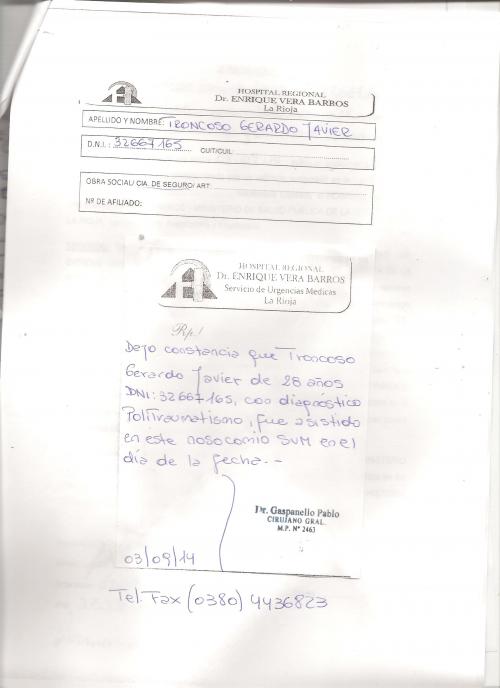 HOSPITAL REGIONAL
Dr. ENRIQUE VERA BARROS
La Rioja
APELLIDO Y NOMBRE: TRONCOSO GERARDO JAVIER
D.N.I.: 32667165 CUIT/CUIL:
OBRA SOCIAL/ CIA. DE SEGURO/ ART:
Nº DE AFILIADO:
HOSPITAL REGIONAL
Dr. ENRIQUE VERA BARROS
Servicio de Urgencias Medicas
La Rioja
Rp./
Dejo constancia que Troncoso
Gerardo Javier de 28 años
DNI: 32667165, con diagnóstico
Politraumatismo, fue asistido
en este nosocomio SUM en el
día de la fecha.-
Dr. Gaspanello Pablo
CIRUJANO GRAL.
M.P. Nº 2463
03/09/14
Tel. Fax (0380) 4436823